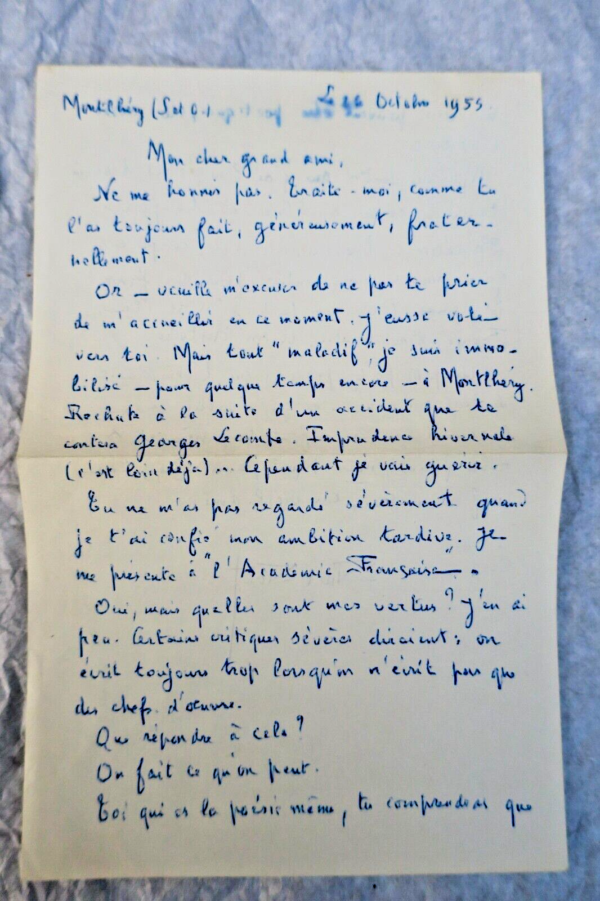 Montlhéry (S et O.) Le Octobre 1955.
Mon cher grand ami,
Ne me honnis pas. Traite-moi, comme tu
l'as toujours fait, généreusement, frater-
nellement.
Or – veuille m'excuser de ne pas te prier
de m'accueillir en ce moment. J'eusse volé
vers toi. Mais tout "maladif", je suis immo-
bilisé – pour quelque temps encore – à Montlhéry.
Rechute à la suite d'un accident que te
contera Georges Lecomte. Imprudence hivernale
(c'est loin déjà)... Cependant je vais guérir.
Tu ne m'as pas regardé sévèrement quand
je t'ai confié mon ambition tardive. Je
me présente à "l'Académie Française".
Oui, mais quelles sont mes vertus? J'en ai
peu. Certains critiques sévères diraient: on
écrit toujours trop lorsqu'on n'écrit pas que
des chefs d'œuvre.
Que répondre à cela?
On fait ce qu'on peut.
Toi qui es la poésie même, tu comprendras que